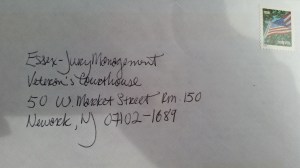 Essex-Jury Management
Veteran's Courthouse
50 W. Market Street Rm 150
Newark, NJ 07102-1689